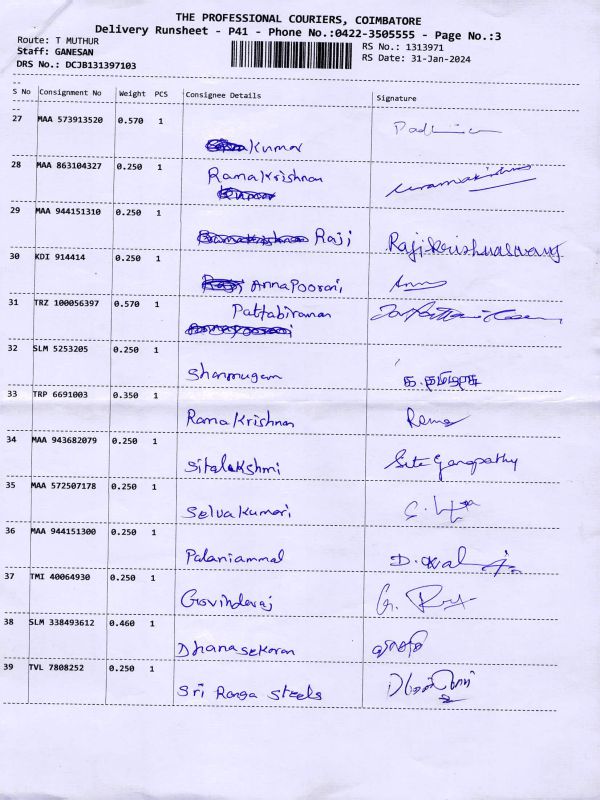 THE PROFESSIONAL COURIERS, COIMBATORE
Delivery Runsheet - P41 - Phone No.:0422-3505555 - Page No.:3
Route: T MUTHUR RS No.: 1313971
Staff: GANESAN RS Date: 31-Jan-2024
DRS No.: DCJB131397103
S No Consignment No Weight PCS Consignee Details Signature
27 MAA 573913520 0.570 1
Kumar
28 MAA 863104327 0.250 1 Ramakrishnan
29 MAA 944151310 0.250 1
Raji Rajikrishnaswamy
30 KDI 914414 0.250 1
Annapoorani
31 TRZ 100056397 0.570 1 Pattabiraman
32 SLM 5253205 0.250 1
Shanmugam
33 TRP 6691003 0.350 1
Ramakrishnan Rama
34 MAA 943682079 0.250 1
Sitalakshmi Sita Ganapathy
35 MAA 572507178 0.250 1
Selvakumari
36 MAA 944151300 0.250 1
Palaniammal
37 TMI 40064930 0.250 1
Govindaraj
38 SLM 338493612 0.460 1
Dhanasekaran
39 TVL 7808252 0.250 1
Sri Ranga Steels